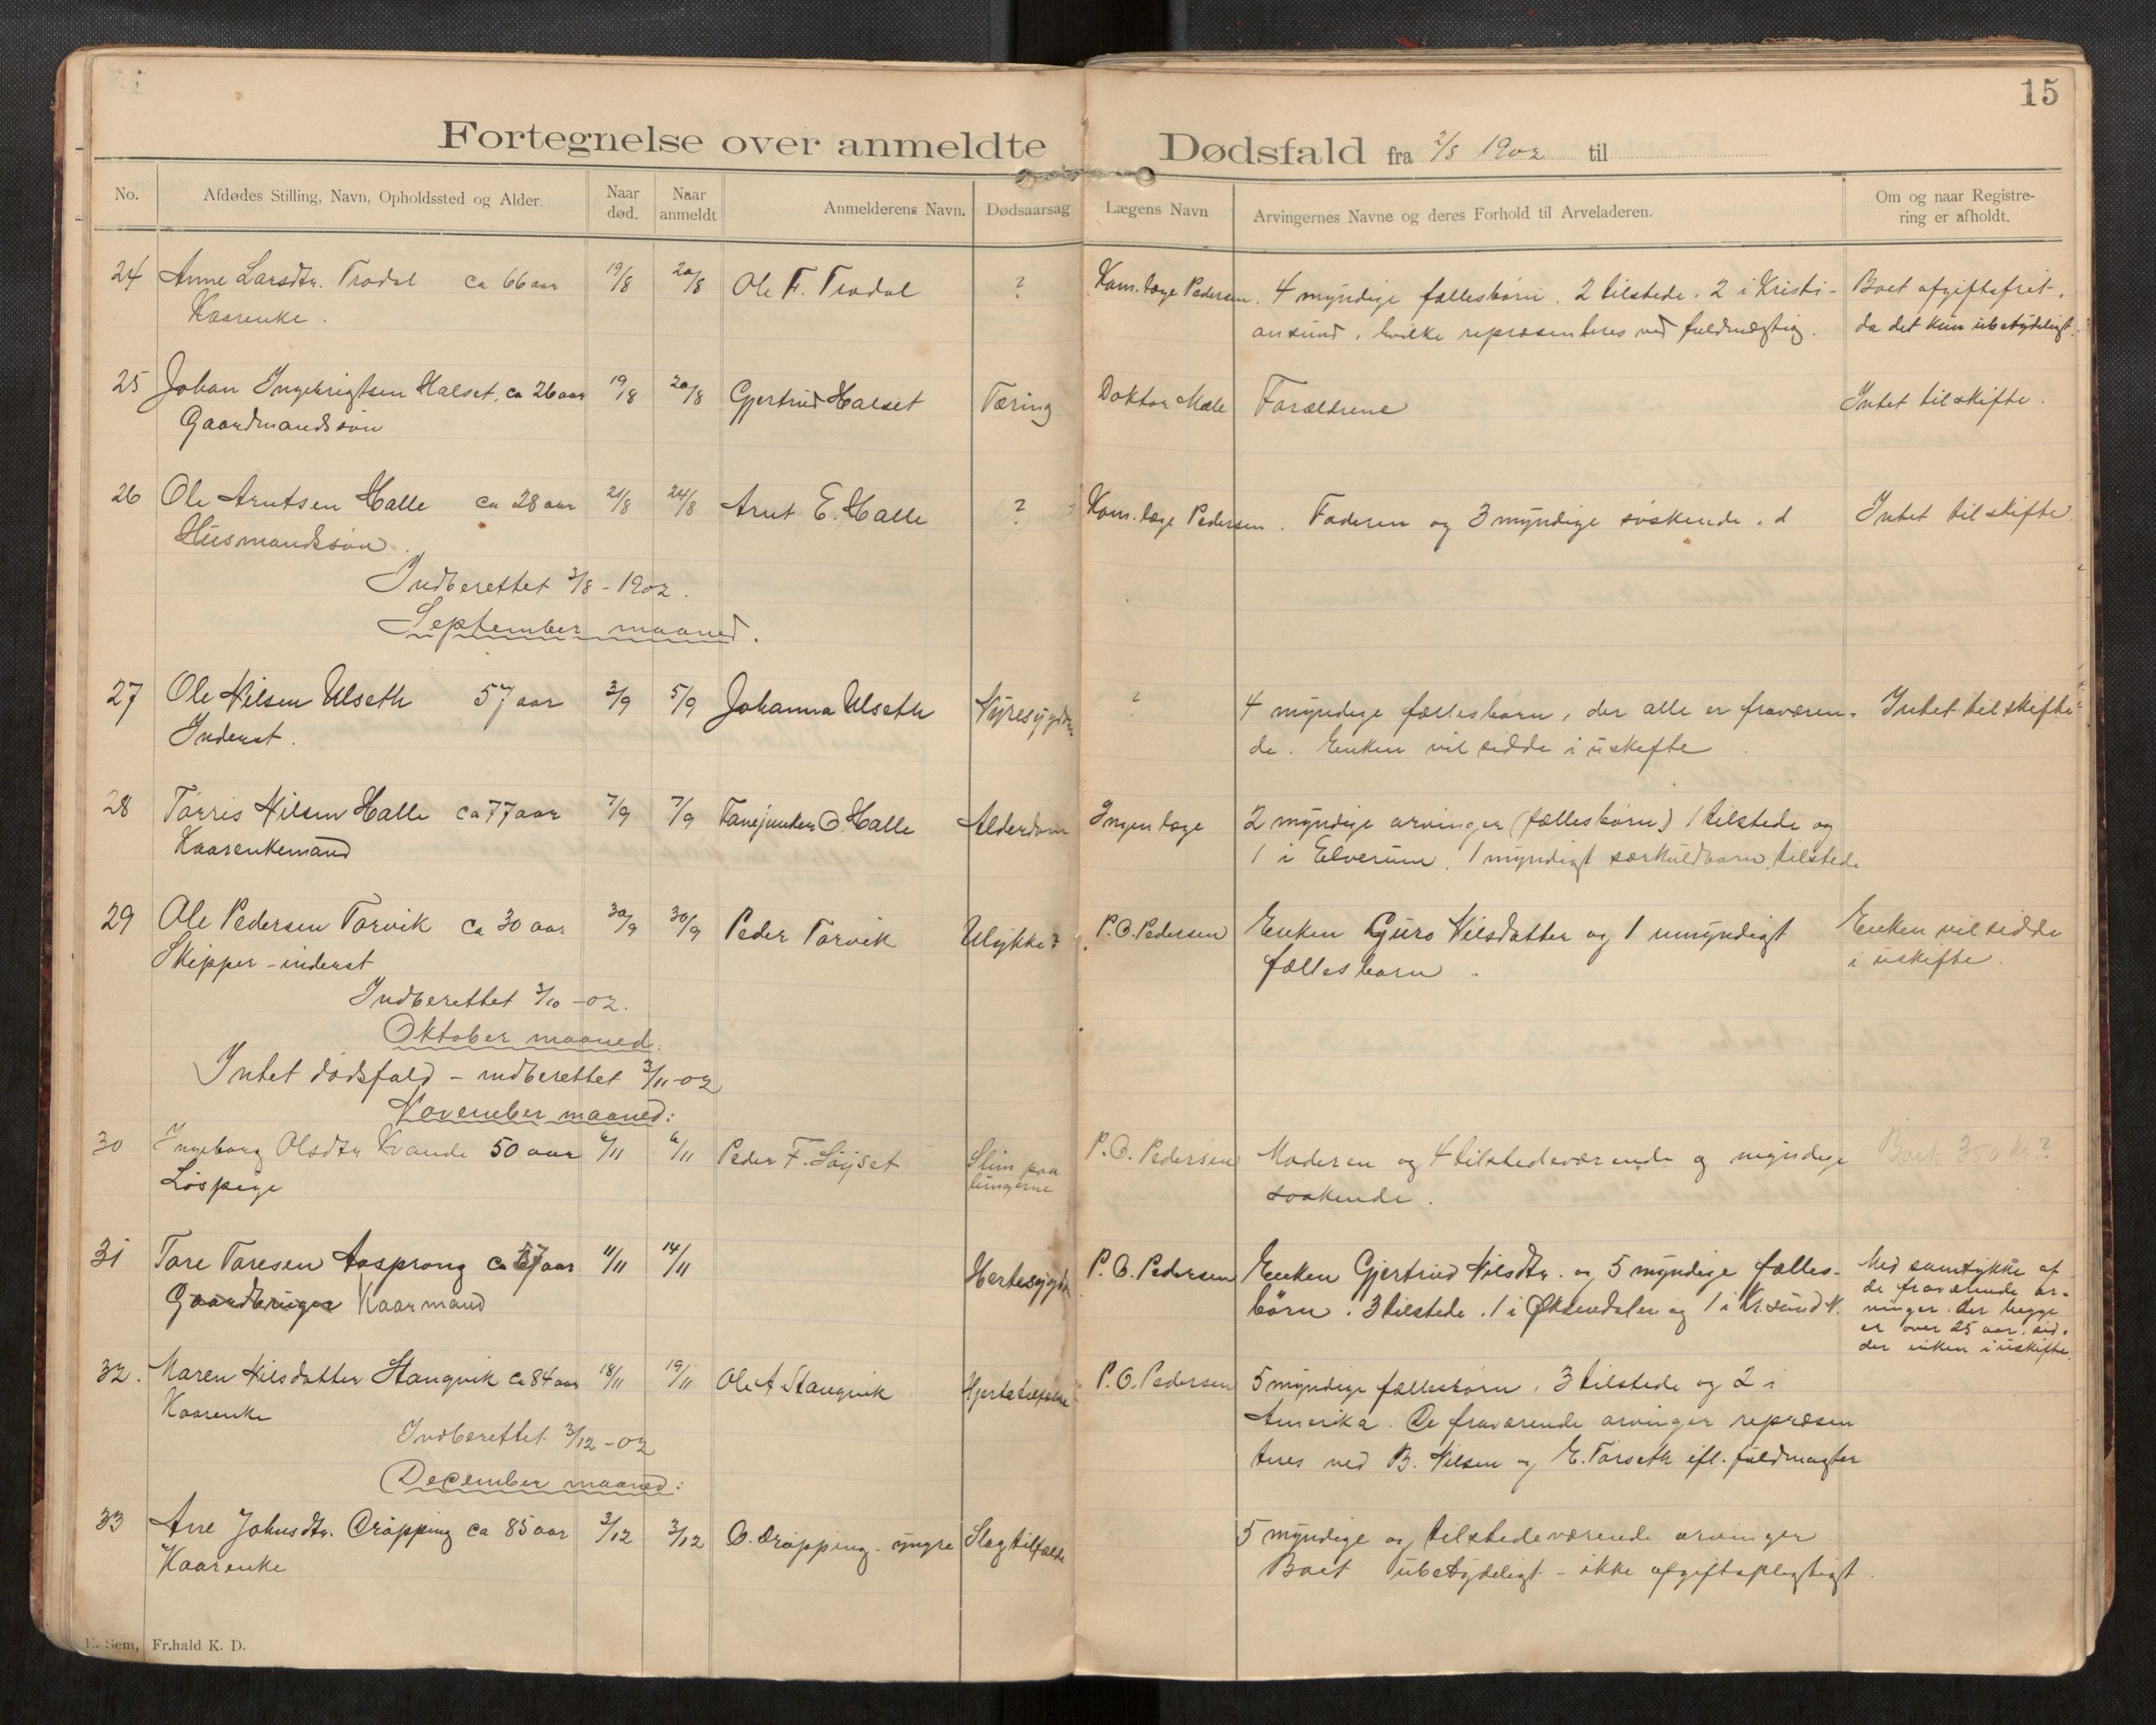 15
Fortegnelse over anmeldte Dødsfald fra 2/8 1902 til
No. Afdødes Stilling, Navn, Opholdssted og Alder. Naar død. Naar anmeldt Anmelderens Navn. Dødsaarsag Lægens Navn Arvingernes Navne og deres Forhold til Arveladeren. Om og naar Registrering er afholdt.
24 Anne Larsdtr. Trødal ca 66 aar 19/8 20/8 Ole F. Trødal ? Kom. læge Pedersen. 4 myndige fællesbørn. 2 tilstede. 2 i Kristi- Boet afgiftsfrit,
Kaarenke. ansund, hvilke repræsenteres ved fuldmægtig. da det kun ubetydeligt.
25 Johan Ingebrigtsen Halset, ca 26 aar 19/8 20/8 Gjertrud Halset Tæring Doktor Mæle Forældrene Intet til skifte.
Gaardmandssøn
26 Ole Arntsen Halle ca 28 aar 21/8 24/8 Arnt E. Halle ? Kom. læge Pedersen. Faderen og 3 myndige søskende. Intet til skifte
Husmandssøn
Indberettet 3/8 - 1902.
September maaned.
27 Ole Nilsen Ulseth 57 aar 3/9 5/9 Johanna Ulseth Nyresygdm ? 4 myndige fællesbørn, der alle er fraværen- Intet til skifte
Inderst. de. Enken vil sidde i uskifte
28 Tørris Nilsen Halle ca 77 aar 7/9 7/9 Fanejunker O. Halle Alderdom Ingen læge 2 myndige arvinger (fællesbørn) 1 tilstede og
Kaarenkemand 1 i Elverum. 1 myndigt særkuldbarn tilstede
29 Ole Pedersen Torvik ca 30 aar 30/9 30/9 Peder Torvik Ulykke? P. O. Pedersen Enken Guro Nilsdatter og 1 umyndigt Enken vil sidde
Skipper - inderst fællesbarn. i uskifte.
Indberettet 3/10 -02.
Oktober maaned.
Intet dødsfald - indberettet 3/11-02
November maaned:
30 Ingeborg Olsdtr Kvande 50 aar 6/11 6/11 Peder F. Søyset Slim paa P. O. Pedersen Moderen og 4 tilstedeværende og myndige Boet 350 kr?
Løspige lungerne søskende.
31 Tore Toresen Aasprong ca 67 aar 11/11 14/11 Hertesygdm P. O. Pedersen Enken Gjertrud Nilsdtr. og 5 myndige fælles- Med samtykke af
Gaardbruger Kaarmand børn. 3 tilstede. 1 i Øksendalen og 1 i Kr.sund N. de fraværende ar-
vinger, der begge
er over 25 aar, sid-
der enken i uskifte.
32. Maren Nilsdatter Stangvik ca 84 aar 18/11 19/11 Ole A Stangvik Hjertetilfælde P. O. Pedersen 5 myndige fællesbørn, 3 tilstede og 2 i
Kaarenke Amerika. De fraværende arvinger repræsen
Indberettet 3/12 -02 teres ved B. Nilsen og E. Torseth ifl. fuldmagter
December maaned:
33 Ane Johnsdtr. Drøpping ca 85 aar 3/12 3/12 O. Drøpping - yngre Slagtilfælde 5 myndige og tilstedeværende arvinger
Kaarenke Boet ubetydeligt - ikke afgiftspligtigt.
E. Sem, Fr.hald K. D.